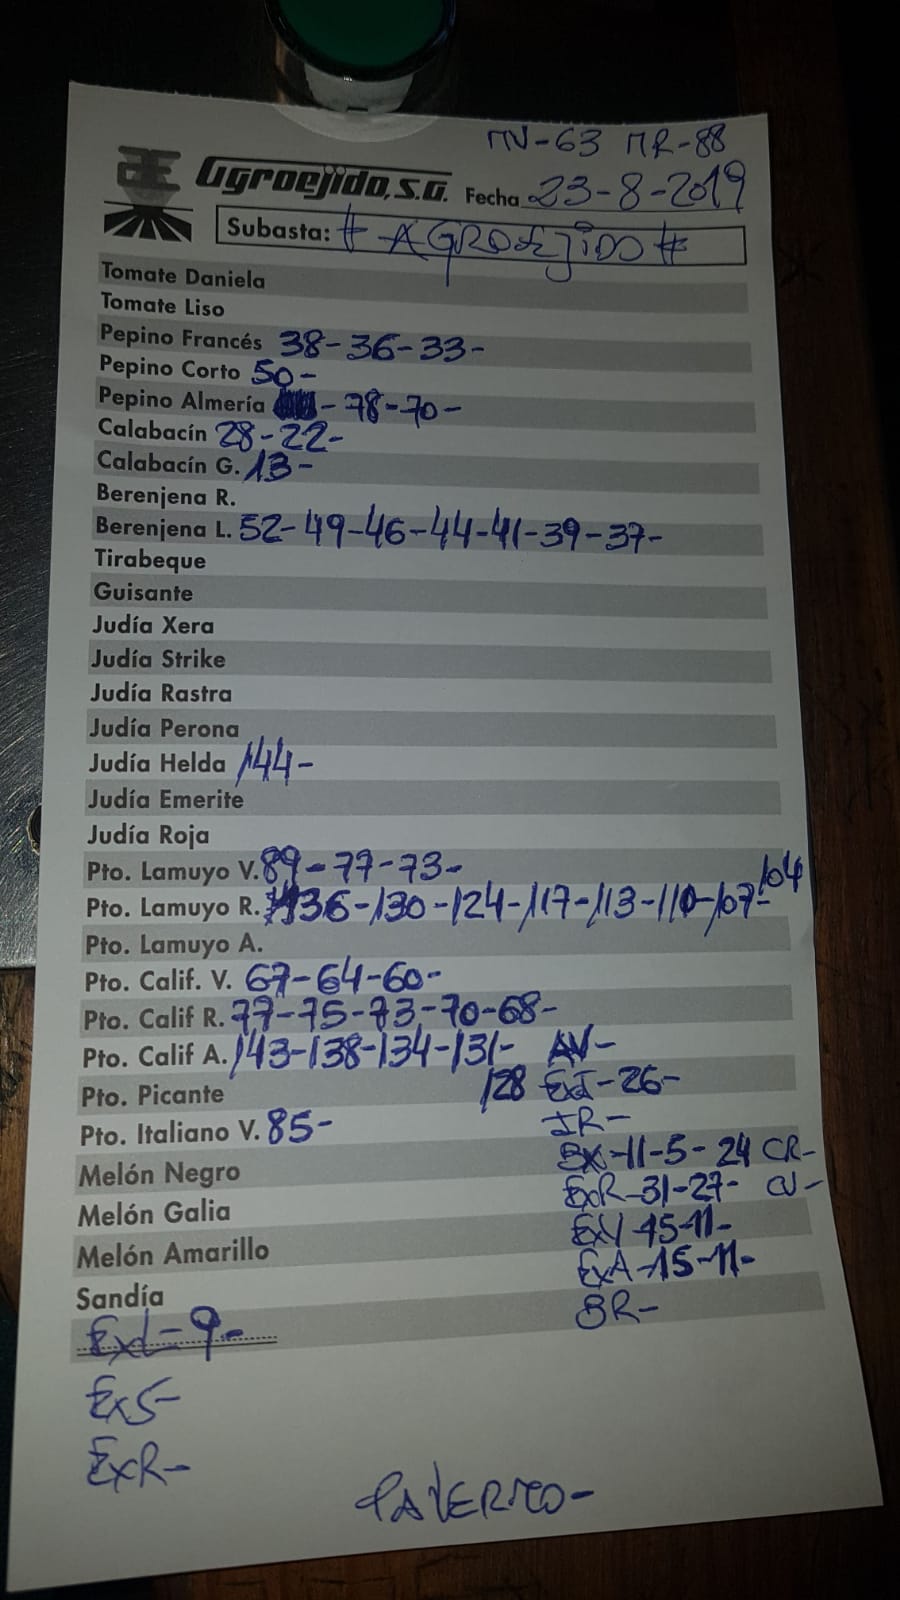 MV-63 MR-88
Agroejido, S.A. Fecha 23-8-2019
Subasta: # AGROEJIDO #
Tomate Daniela
Tomate Liso
Pepino Francés 38-36-33-
Pepino Corto 50-
Pepino Almería -78-70-
Calabacín 28-22-
Calabacín G. 13-
Berenjena R.
Berenjena L. 52-49-46-44-41-39-37-
Tirabeque
Guisante
Judía Xera
Judía Strike
Judía Rastra
Judía Perona
Judía Helda 144-
Judía Emerite
Judía Roja
Pto. Lamuyo V. 89-77-73-
Pto. Lamuyo R. 136-130-124-117-113-110-107-104
Pto. Lamuyo A.
Pto. Calif. V. 67-64-60-
Pto. Calif R. 77-75-73-70-68-
Pto. Calif A. 143-138-134-131- AV-
Pto. Picante 128 ExI-26-
IR-
Pto. Italiano V. 85-
BX-11-5-24 CR-
Melón Negro
ExR-31-27- CV-
Melón Galia
ExV-15-11-
Melón Amarillo
ExA-15-11-
Sandía
BR-
ExL-9-
ExS-
ExR-